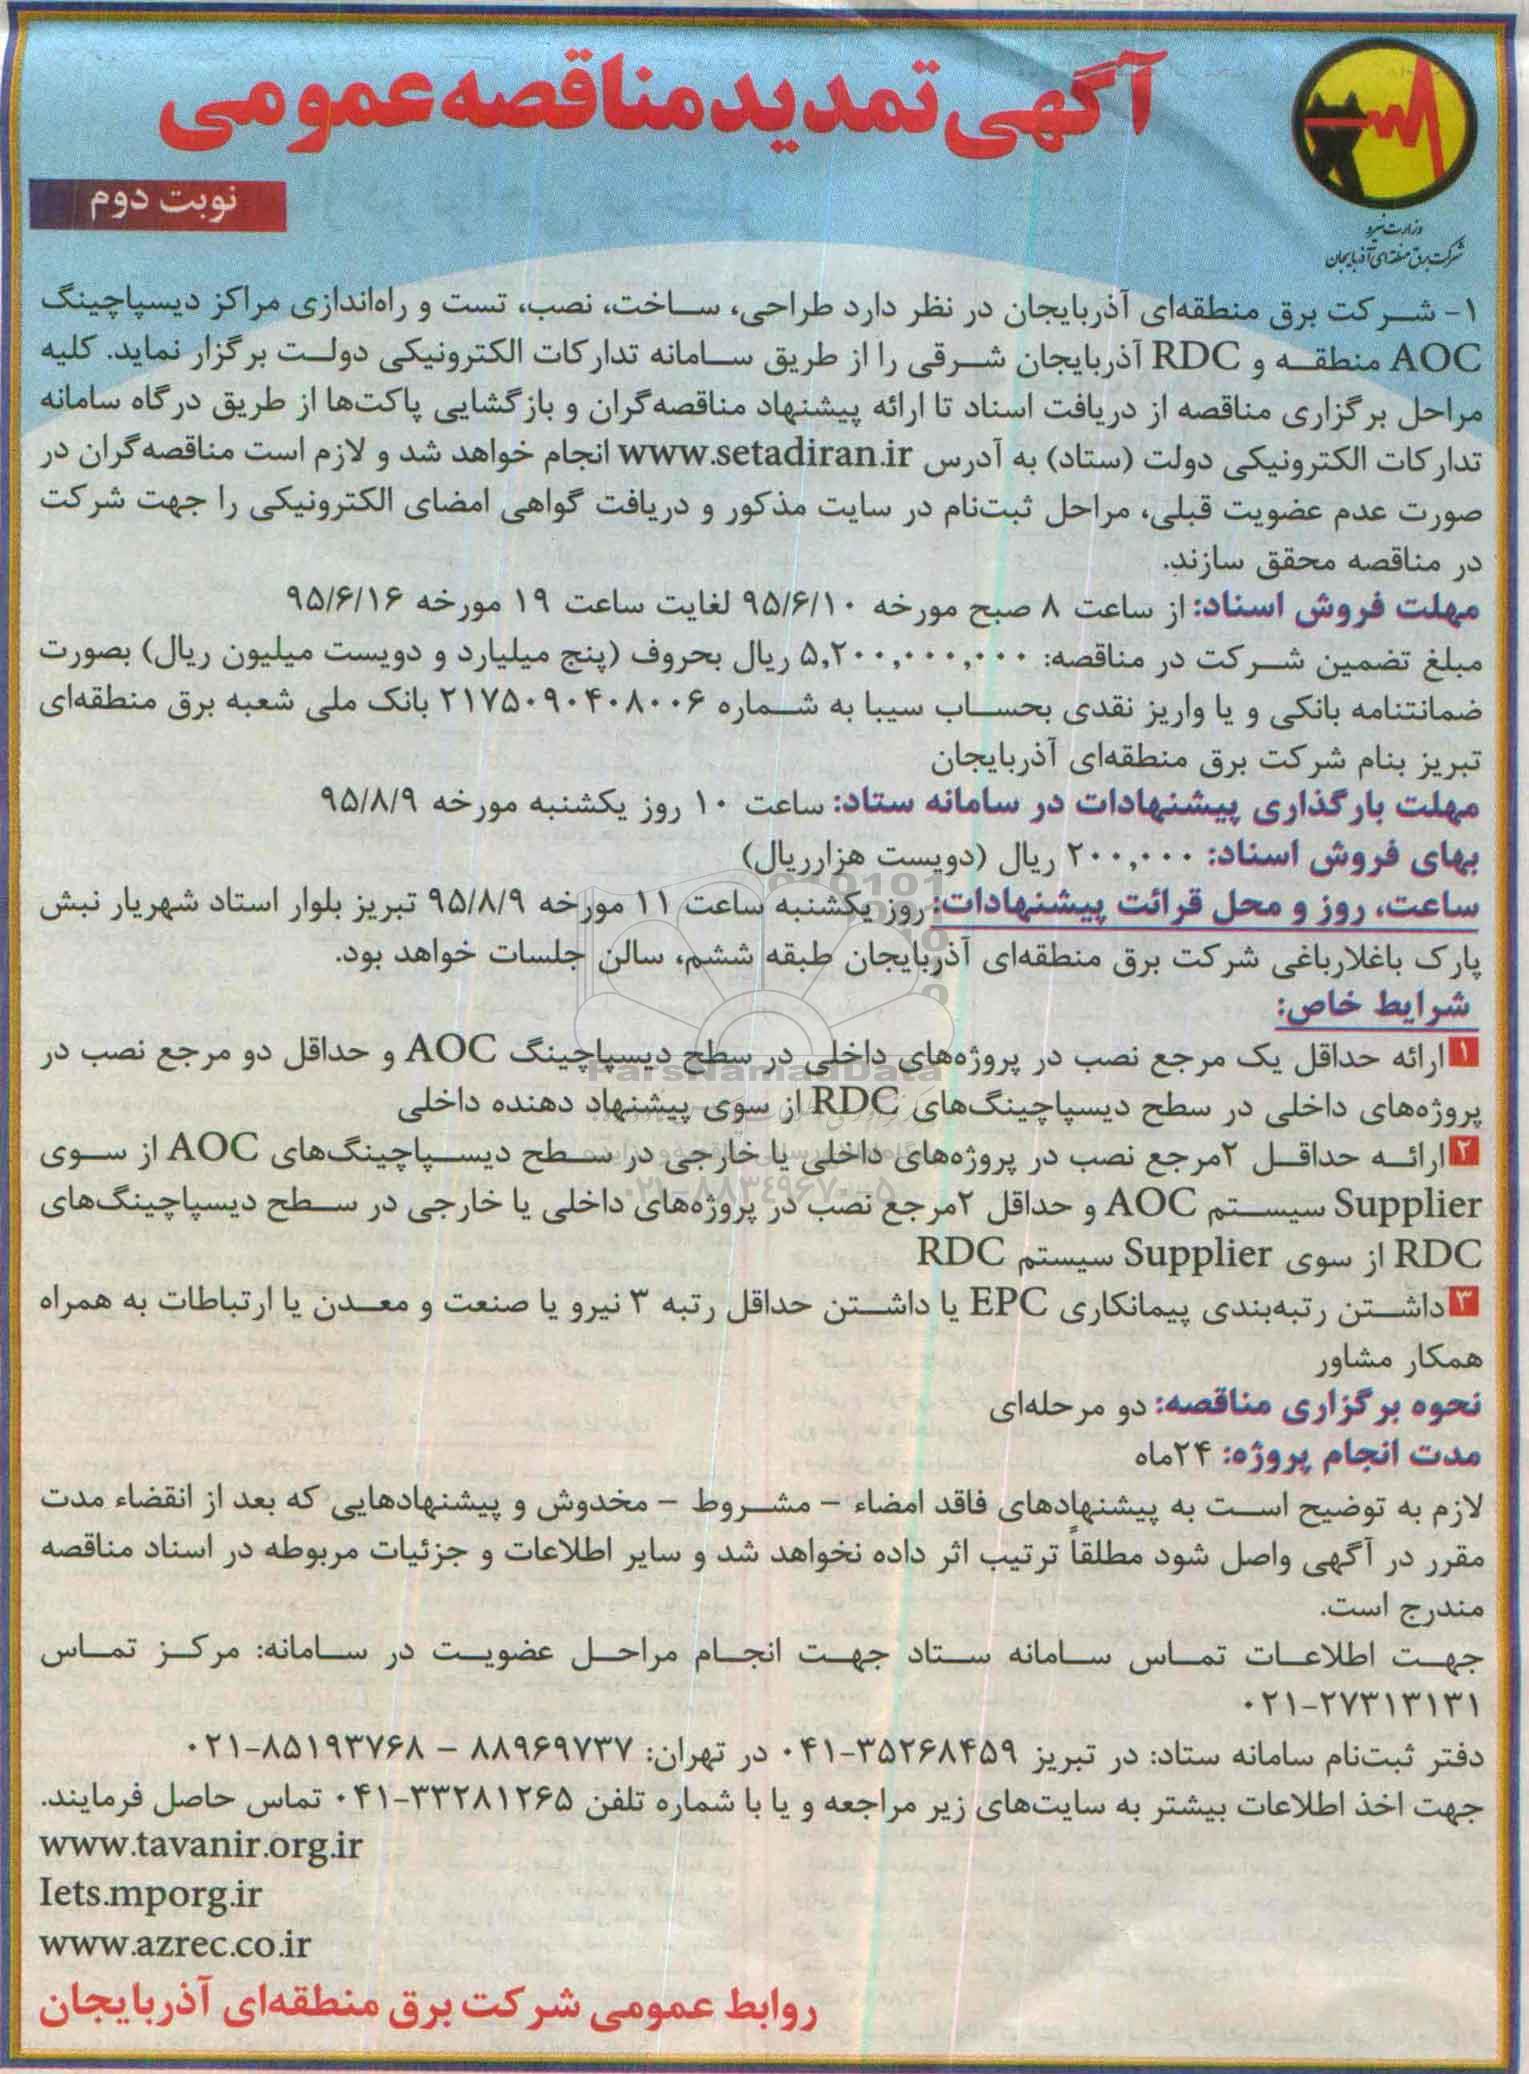 آگهی تمدید مناقصه عمومی
وزارت نیرو
شرکت برق منطقه‌ای آذربایجان
نوبت دوم
۱- شرکت برق منطقه‌ای آذربایجان در نظر دارد طراحی، ساخت، نصب، تست و راه‌اندازی مراکز دیسپاچینگ
AOC منطقه و RDC آذربایجان شرقی را از طریق سامانه تدارکات الکترونیکی دولت برگزار نماید. کلیه
مراحل برگزاری مناقصه از دریافت اسناد تا ارائه پیشنهاد مناقصه‌گران و بازگشایی پاکت‌ها از طریق درگاه سامانه
تدارکات الکترونیکی دولت (ستاد) به آدرس www.setadiran.ir انجام خواهد شد و لازم است مناقصه‌گران در
صورت عدم عضویت قبلی، مراحل ثبت‌نام در سایت مذکور و دریافت گواهی امضای الکترونیکی را جهت شرکت
در مناقصه محقق سازند.
مهلت فروش اسناد: از ساعت ۸ صبح مورخه ۹۵/۶/۱۰ لغایت ساعت ۱۹ مورخه ۹۵/۶/۱۶
مبلغ تضمین شرکت در مناقصه: ۵,۲۰۰,۰۰۰,۰۰۰ ریال بحروف (پنج میلیارد و دویست میلیون ریال) بصورت
ضمانتنامه بانکی و یا واریز نقدی بحساب سیبا به شماره ۲۱۷۵۰۹۰۴۰۸۰۰۶ بانک ملی شعبه برق منطقه‌ای
تبریز بنام شرکت برق منطقه‌ای آذربایجان
مهلت بارگذاری پیشنهادات در سامانه ستاد: ساعت ۱۰ روز یکشنبه مورخه ۹۵/۸/۹
بهای فروش اسناد: ۲۰۰,۰۰۰ ریال (دویست هزارریال)
ساعت، روز و محل قرائت پیشنهادات: روز یکشنبه ساعت ۱۱ مورخه ۹۵/۸/۹ تبریز بلوار استاد شهریار نبش
پارک باغلارباغی شرکت برق منطقه‌ای آذربایجان طبقه ششم، سالن جلسات خواهد بود.
شرایط خاص:
۱ ارائه حداقل یک مرجع نصب در پروژه‌های داخلی در سطح دیسپاچینگ AOC و حداقل دو مرجع نصب در
پروژه‌های داخلی در سطح دیسپاچینگ‌های RDC از سوی پیشنهاد دهنده داخلی
۲ ارائه حداقل ۲مرجع نصب در پروژه‌های داخلی یا خارجی در سطح دیسپاچینگ‌های AOC از سوی
Supplier سیستم AOC و حداقل ۲مرجع نصب در پروژه‌های داخلی یا خارجی در سطح دیسپاچینگ‌های
RDC از سوی Supplier سیستم RDC
۳ داشتن رتبه‌بندی پیمانکاری EPC یا داشتن حداقل رتبه ۳ نیرو یا صنعت و معدن یا ارتباطات به همراه
همکار مشاور
نحوه برگزاری مناقصه: دو مرحله‌ای
مدت انجام پروژه: ۲۴ماه
لازم به توضیح است به پیشنهادهای فاقد امضاء – مشروط – مخدوش و پیشنهادهایی که بعد از انقضاء مدت
مقرر در آگهی واصل شود مطلقاً ترتیب اثر داده نخواهد شد و سایر اطلاعات و جزئیات مربوطه در اسناد مناقصه
مندرج است.
جهت اطلاعات تماس سامانه ستاد جهت انجام مراحل عضویت در سامانه: مرکز تماس
۰۲۱-۲۷۳۱۳۱۳۱
دفتر ثبت‌نام سامانه ستاد: در تبریز ۰۴۱-۳۵۲۶۸۴۵۹ در تهران: ۸۸۹۶۹۷۳۷ – ۰۲۱-۸۵۱۹۳۷۶۸
جهت اخذ اطلاعات بیشتر به سایت‌های زیر مراجعه و یا با شماره تلفن ۰۴۱-۳۳۲۸۱۲۶۵ تماس حاصل فرمایند.
www.tavanir.org.ir
Iets.mporg.ir
www.azrec.co.ir
روابط عمومی شرکت برق منطقه‌ای آذربایجان
ParsNamadData
۰۲۱-۸۸۳۴۹۶۷۰-۵